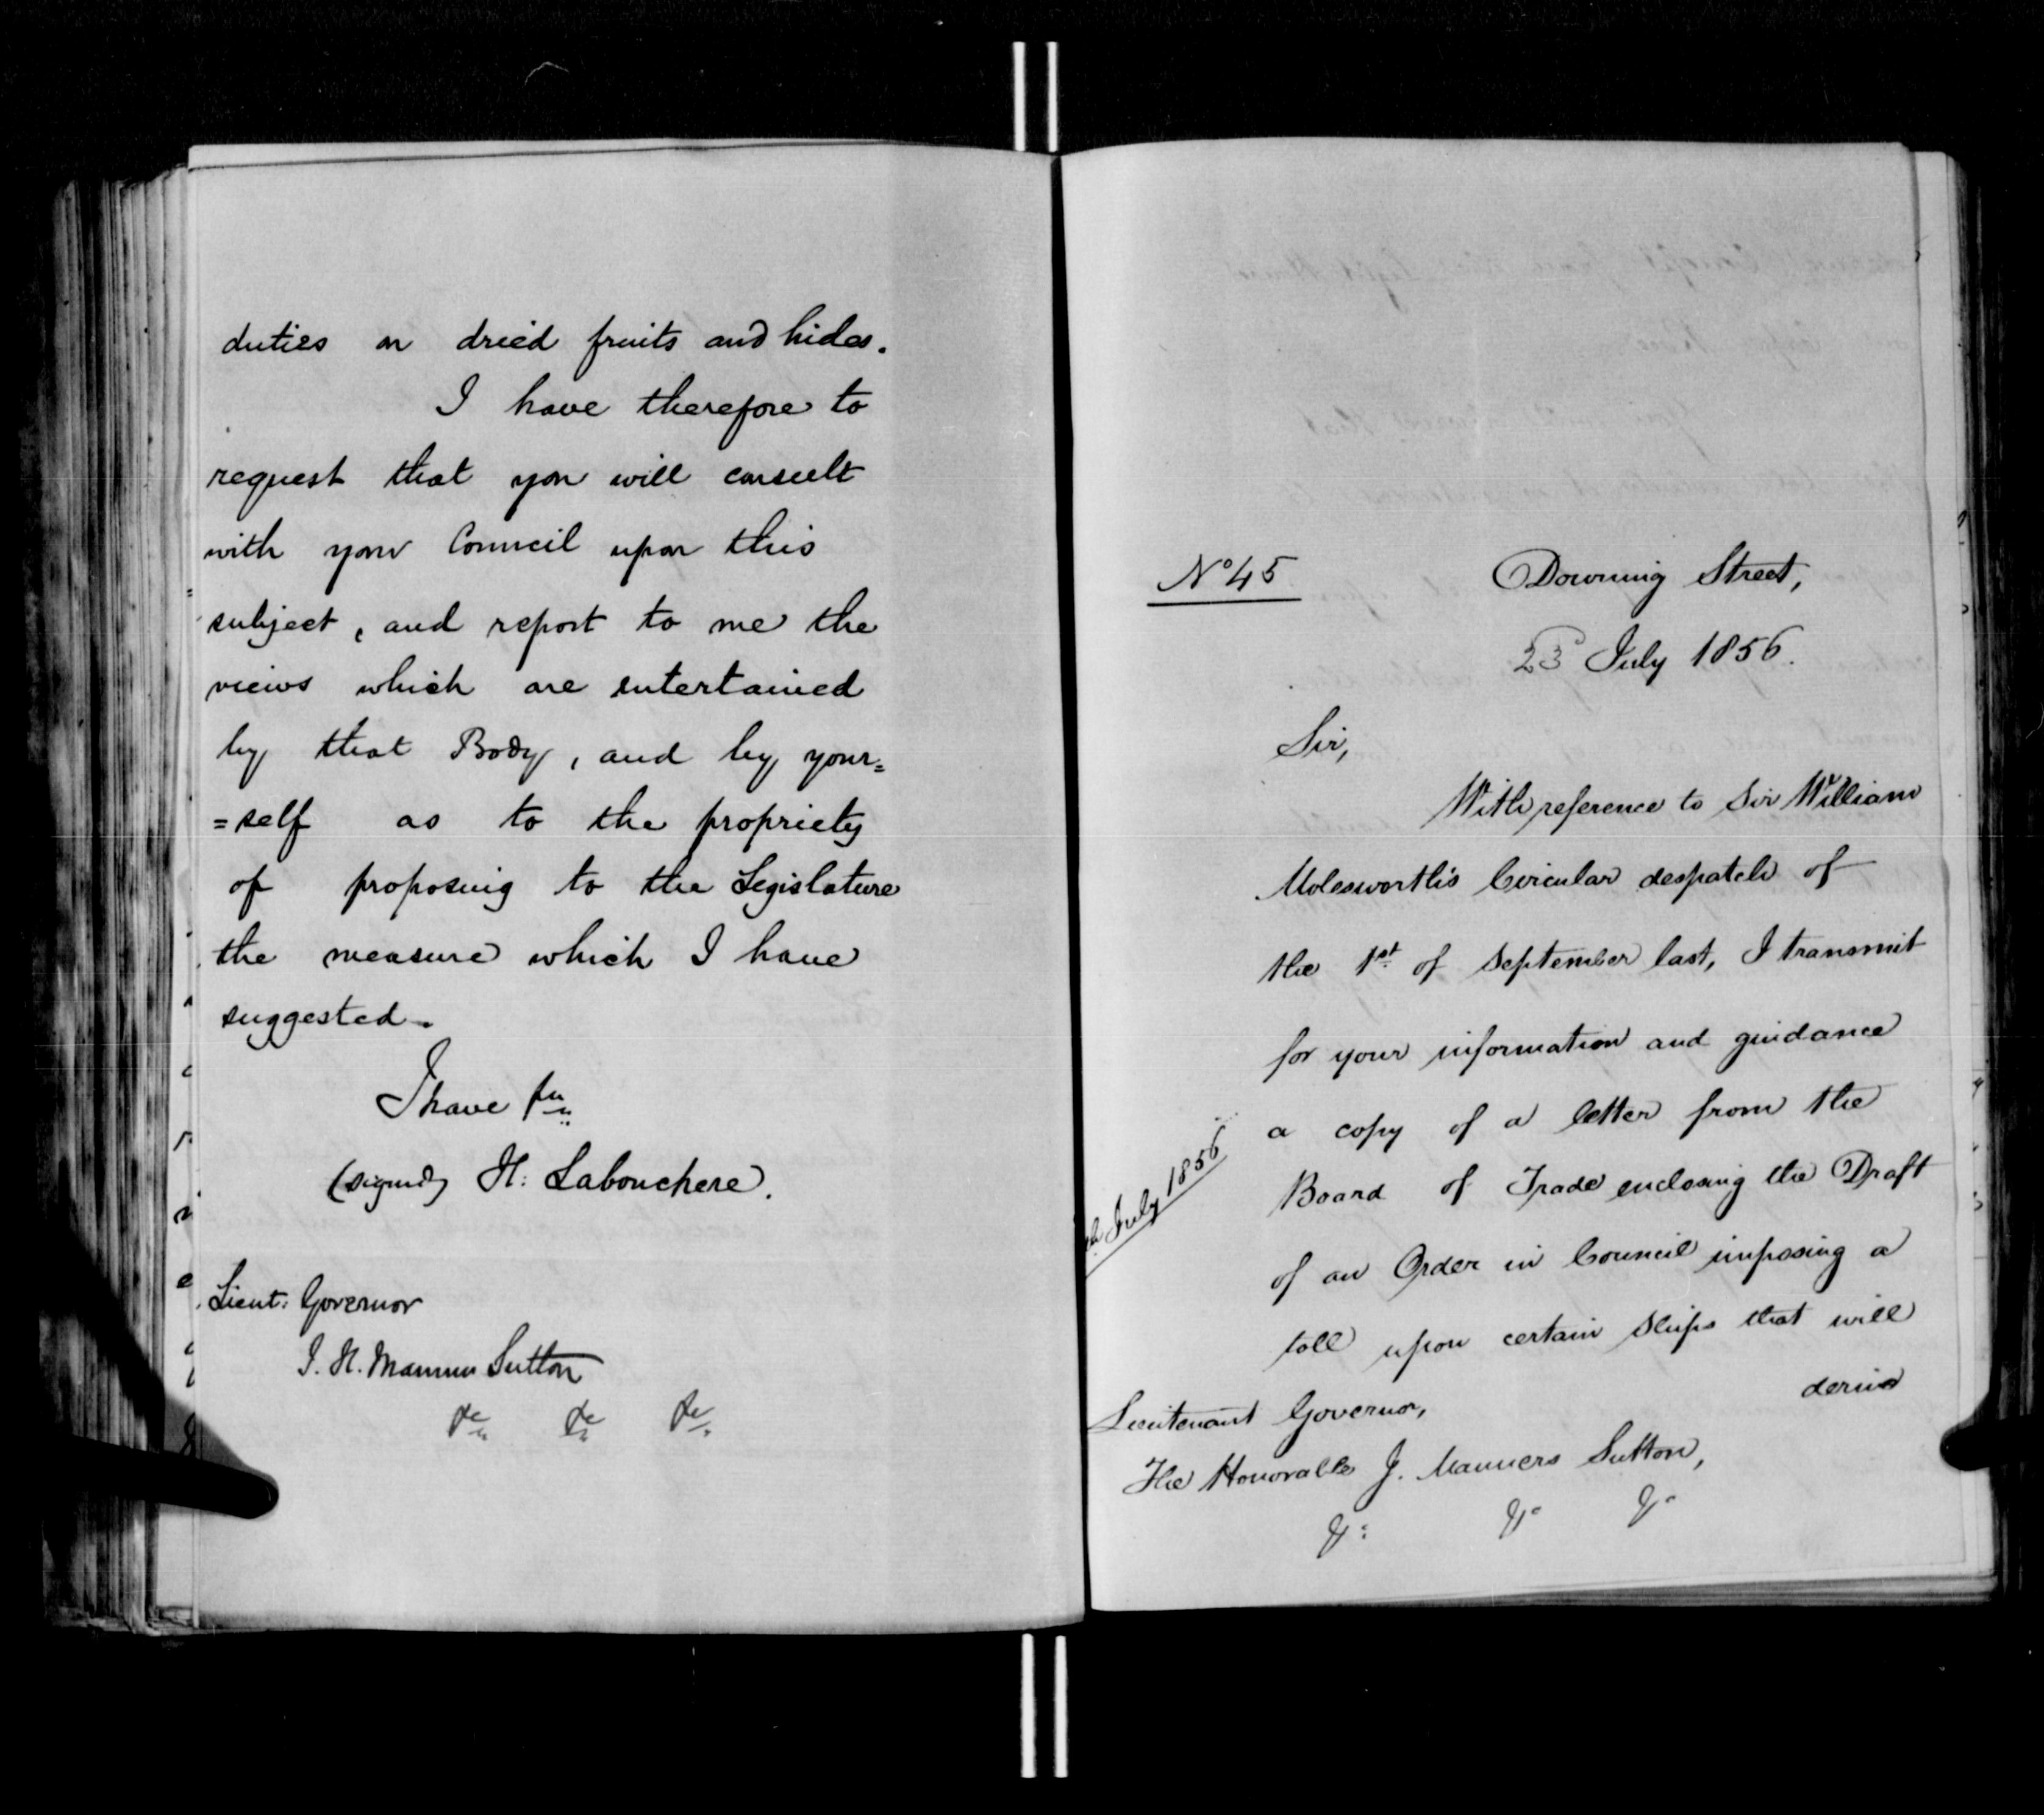 duties on dried fruits and hides.
I have therefore to
request that you will consult
with your Council upon this
subject, and report to me the
views which are entertained
by that Body, and by your=
=self as to the propriety
of proposing to the Legislature
the measure which I have
suggested.
I have &c
(signed) H: Labouchere.
Lieut: Governor
J. H. Manners Sutton
&c &c &c
No 45
Downing Street,
23 July 1856.
Sir,
With reference to Sir William
Molesworth's Circular despatch of
the 1st of September last, I transmit
for your information and guidance
a copy of a letter from the
July 1856
Board of Trade enclosing the Draft
of an Order in Council imposing a
toll upon certain Ships that will
derive
Lieutenant Governor,
The Honorable J. Manners Sutton,
&c &c &c